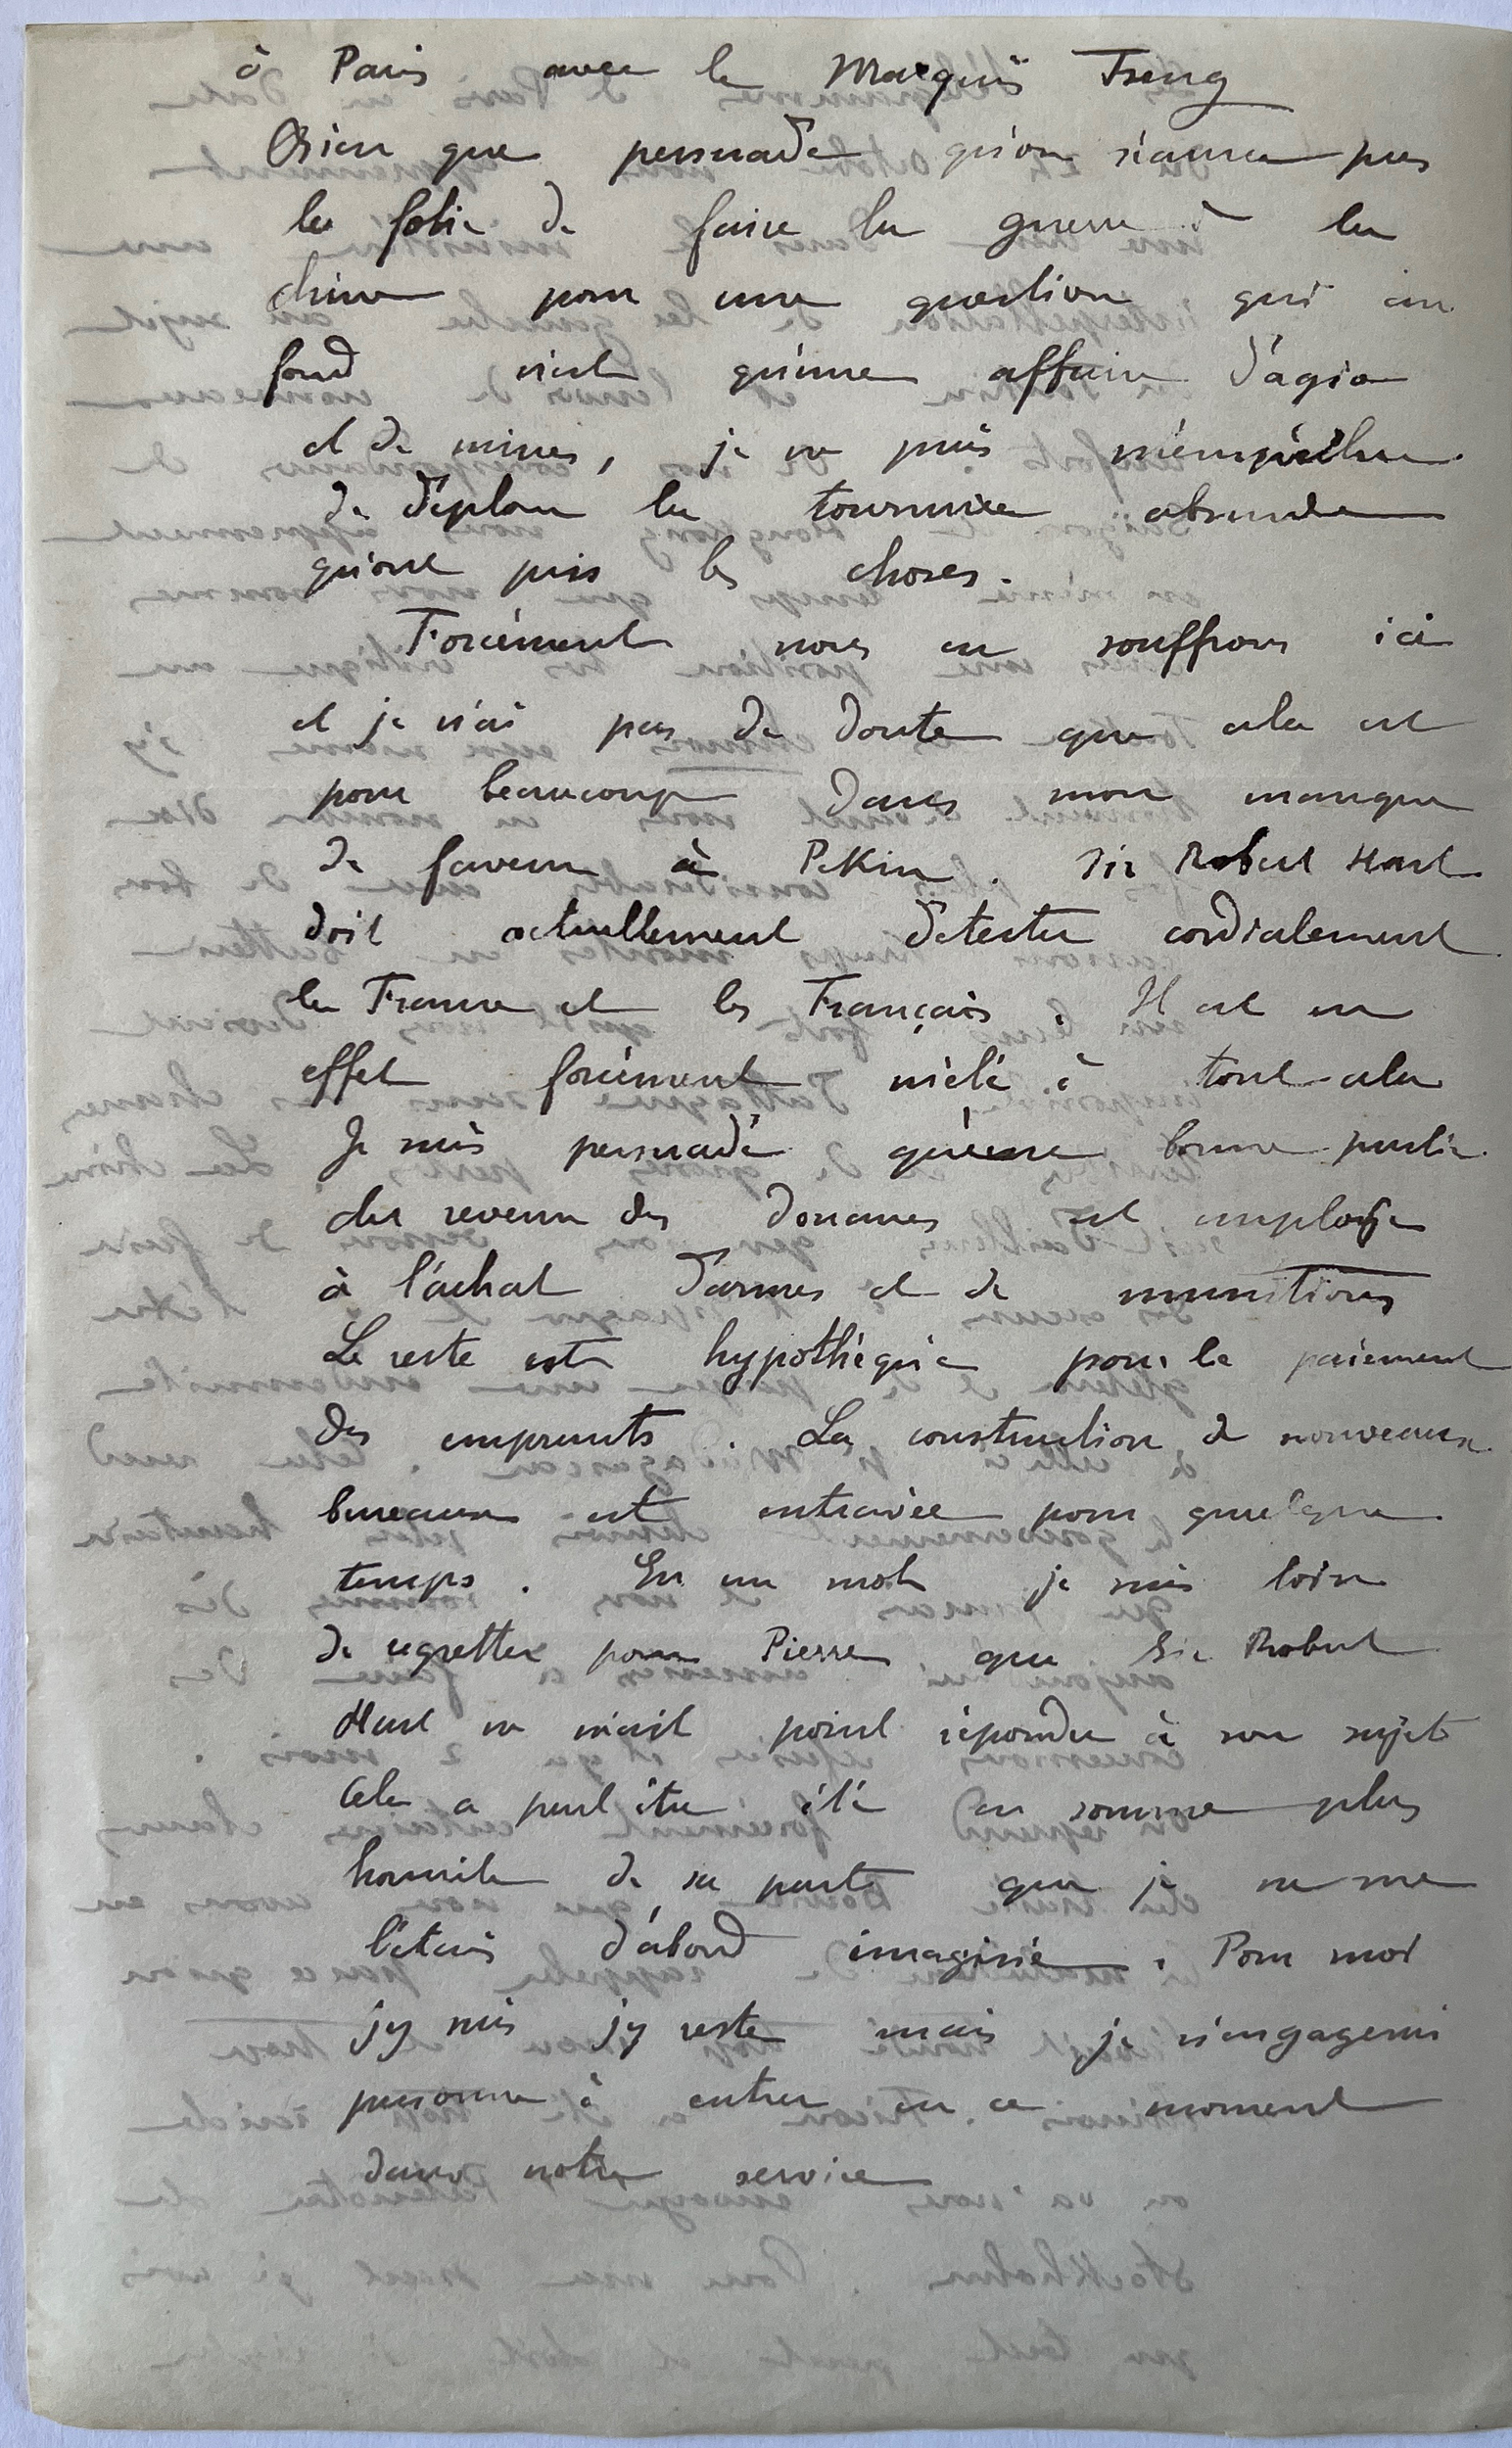 à Paris avec le Marquis Tseng
Bien que persuadé qu'on n'aura pas
la folie de faire la guerre à la
chine pour une question qui au
fond n'est qu'une affaire d'agio
et de mines, je ne puis m'empêcher
de déplorer la tournure absurde
qu'ont pris les choses.
Forcément nous en souffrons ici
et je n'ai pas de doute que cela est
pour beaucoup dans mon manque
de faveur à Pekin. Sir Robert Hart
doit actuellement détester cordialement
la France et les Français. Il est en
effet forcément mêlé à tout cela
Je suis persuadé qu'une bonne partie
des revenu des Douanes est employée
à l'achat d'armes et de munitions
Le reste est hypothéqué pour le paiement
des emprunts. La construction de nouveaux
bureaux est entravée pour quelque
temps. En un mot je suis loin
de regretter pour Pierre que Sir Robert
Hart ne m'ait point répondu à son sujet
Cela a peut être été en somme plus
honnête de sa part que je ne me
l'étais d'abord imaginé. Pour moi
j'y suis j'y reste mais je n'engagerai
personne à entrer en ce moment
dans notre service